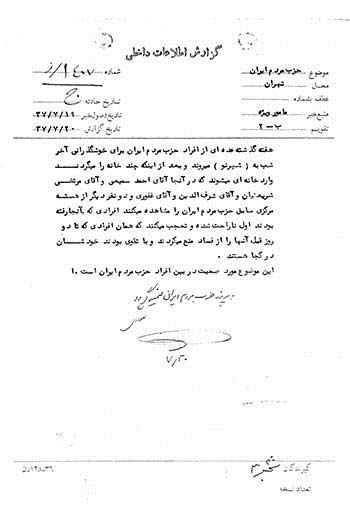 گزارش اطلاعات داخلی
موضوع حزب مردم ایران
شماره ۱۴۰۷/ز
محل تهران
عطف بشماره
تاریخ حادثه
منبع خبر مامور ویژه
تاریخ وصول خبر ۳۷/۷/۱۹
تقویم ب-۲
تاریخ گزارش ۳۷/۷/۲۰
هفته گذشته عده ای از افراد حزب مردم ایران برای خوشگذرانی آخر
شب به (شهرنو) میروند و بعد از اینکه چند خانه را میگردند
وارد خانه ای میشوند که در آنجا آقای احمد سمیعی و آقای مرتضی
و آقای شرف الدین و آقای غفوری و دو نفر دیگر از دسته
مرکزی سابق حزب مردم ایران را مشاهده میکنند افرادی که بآنجا رفته
بودند اول ناراحت شده و تعجب میکنند که همان افرادی که تا دو
روز قبل آنها را از فساد منع میکردند و با تقوی بودند خودشان
در کجا هستند .
این موضوع مورد صحبت در بین افراد حزب مردم ایران است .
حزب مردم ایران
۷/۲۰
گیرندگان
۳
تعداد نسخه